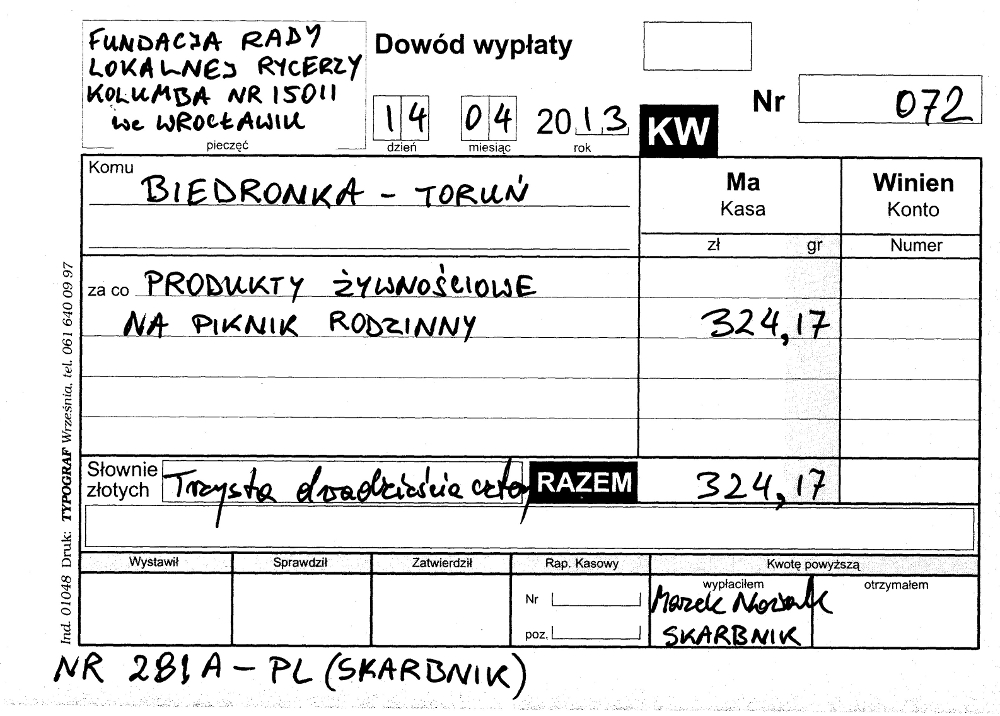 FUNDACJA RADY
LOKALNEJ RYCERZY
KOLUMBA NR 15011
we WROCŁAWIU
pieczęć
Dowód wypłaty
14 04 2013
dzień miesiąc rok
KW
Nr 072
Komu BIEDRONKA - TORUŃ
Ma
Kasa
zł gr
Winien
Konto
Numer
za co PRODUKTY ŻYWNOŚCIOWE
NA PIKNIK RODZINNY 324,17
Słownie
złotych Trzysta dwadzieścia cztery
RAZEM 324,17
Wystawił Sprawdził Zatwierdził Rap. Kasowy Kwotę powyższą
wypłaciłem otrzymałem
Nr
poz.
Marek Nowak
SKARBNIK
NR 281A - PL (SKARBNIK)
Ind. 01048 Druk: TYPOGRAF Września, tel. 061 640 09 97